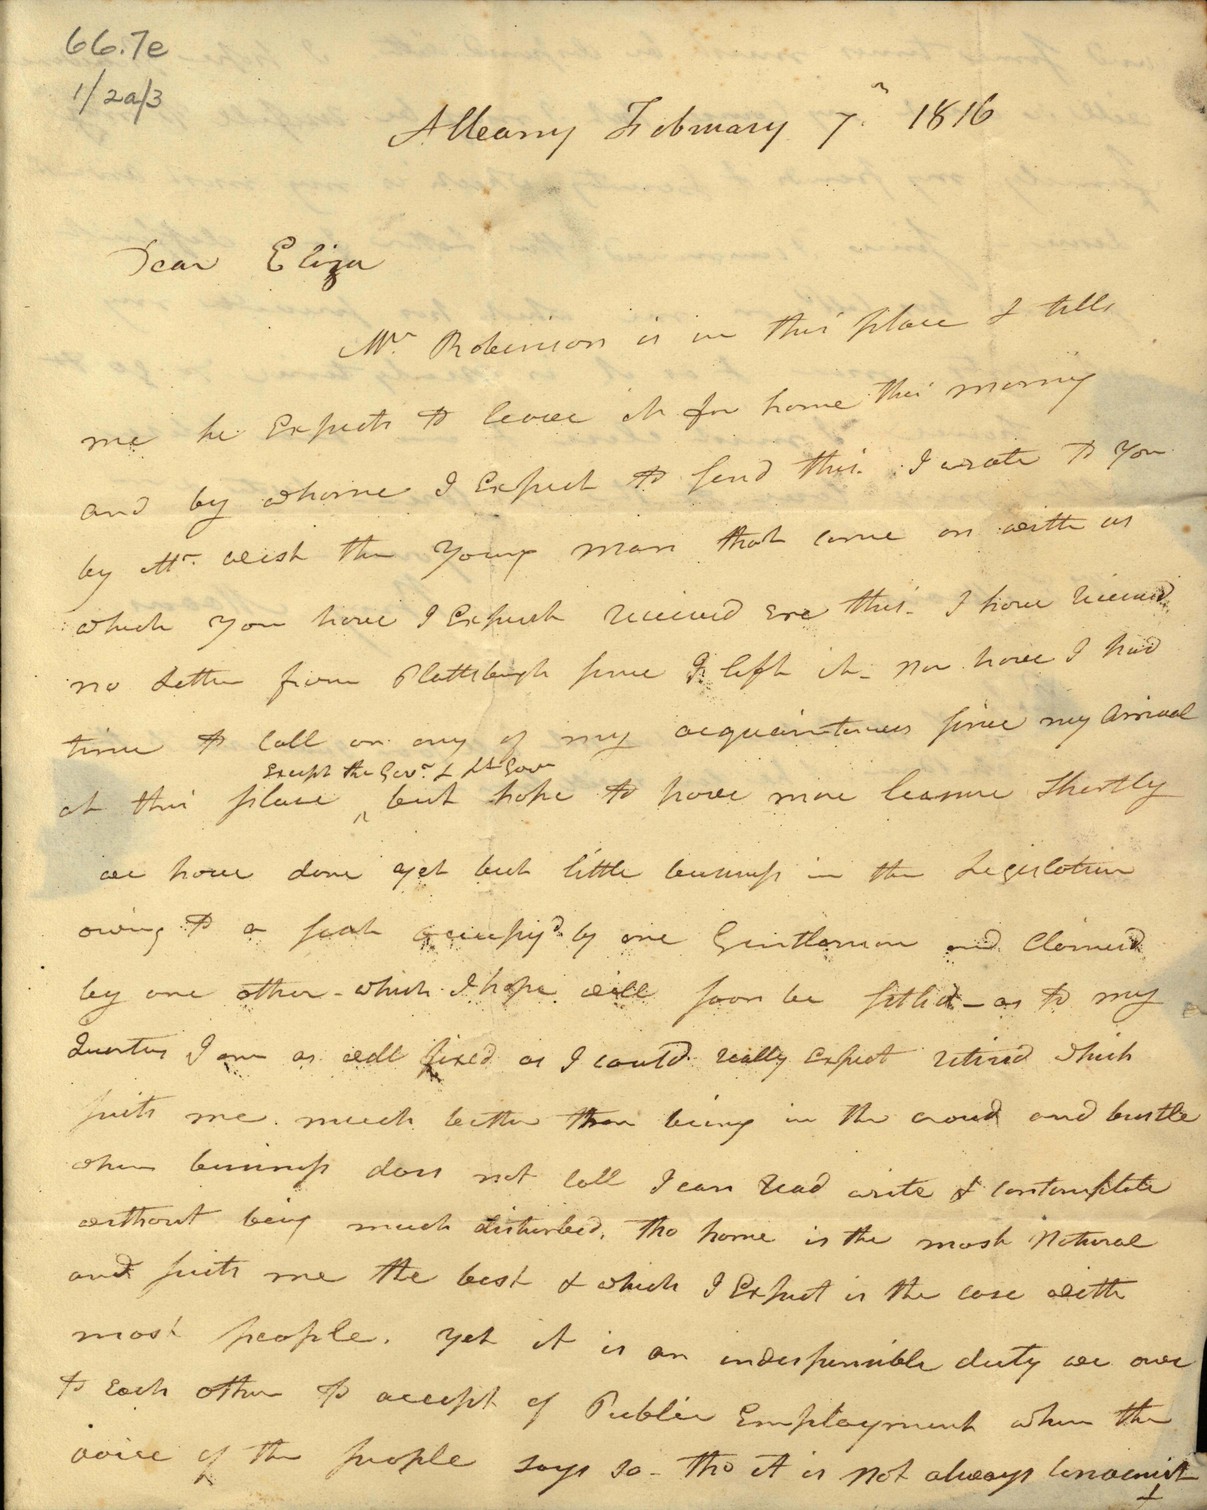 66.7e
1/2a/3
Albany February 7th 1816
Dear Eliza
Mr. Robinson is in this place & tells
me he Expects to leave it for home this morning
and by whome I Expect to send this. I wrote to You
by Mr. wish the Young man that come on with us
which You have I Expect received ere this. I have received
no Letter from Plattsburgh since I left it - nor have I had
time to call on any of my acquaintences since my Arrival
Except the Govr. & Lt Govr
at this place ^ but hope to have more leasure Shortly
we have done yet but little business in the Legislature
owing to a seat occupy'd by one Gentleman and Claimed
by one other - which I hope will soon be settled - as to my
Quarters I am as well fixed as I could really expect retired which
suits me much better than being in the croud and bustle
when business does not call I can read write & contemplate
without being much disturbed. tho home is the most Natural
and suits me the best & which I Expect is the case with
most people. yet it is an indespensible duty we owe
to each other to accept of Public Employment when the
voice of the people says so - tho it is not always convenient
&